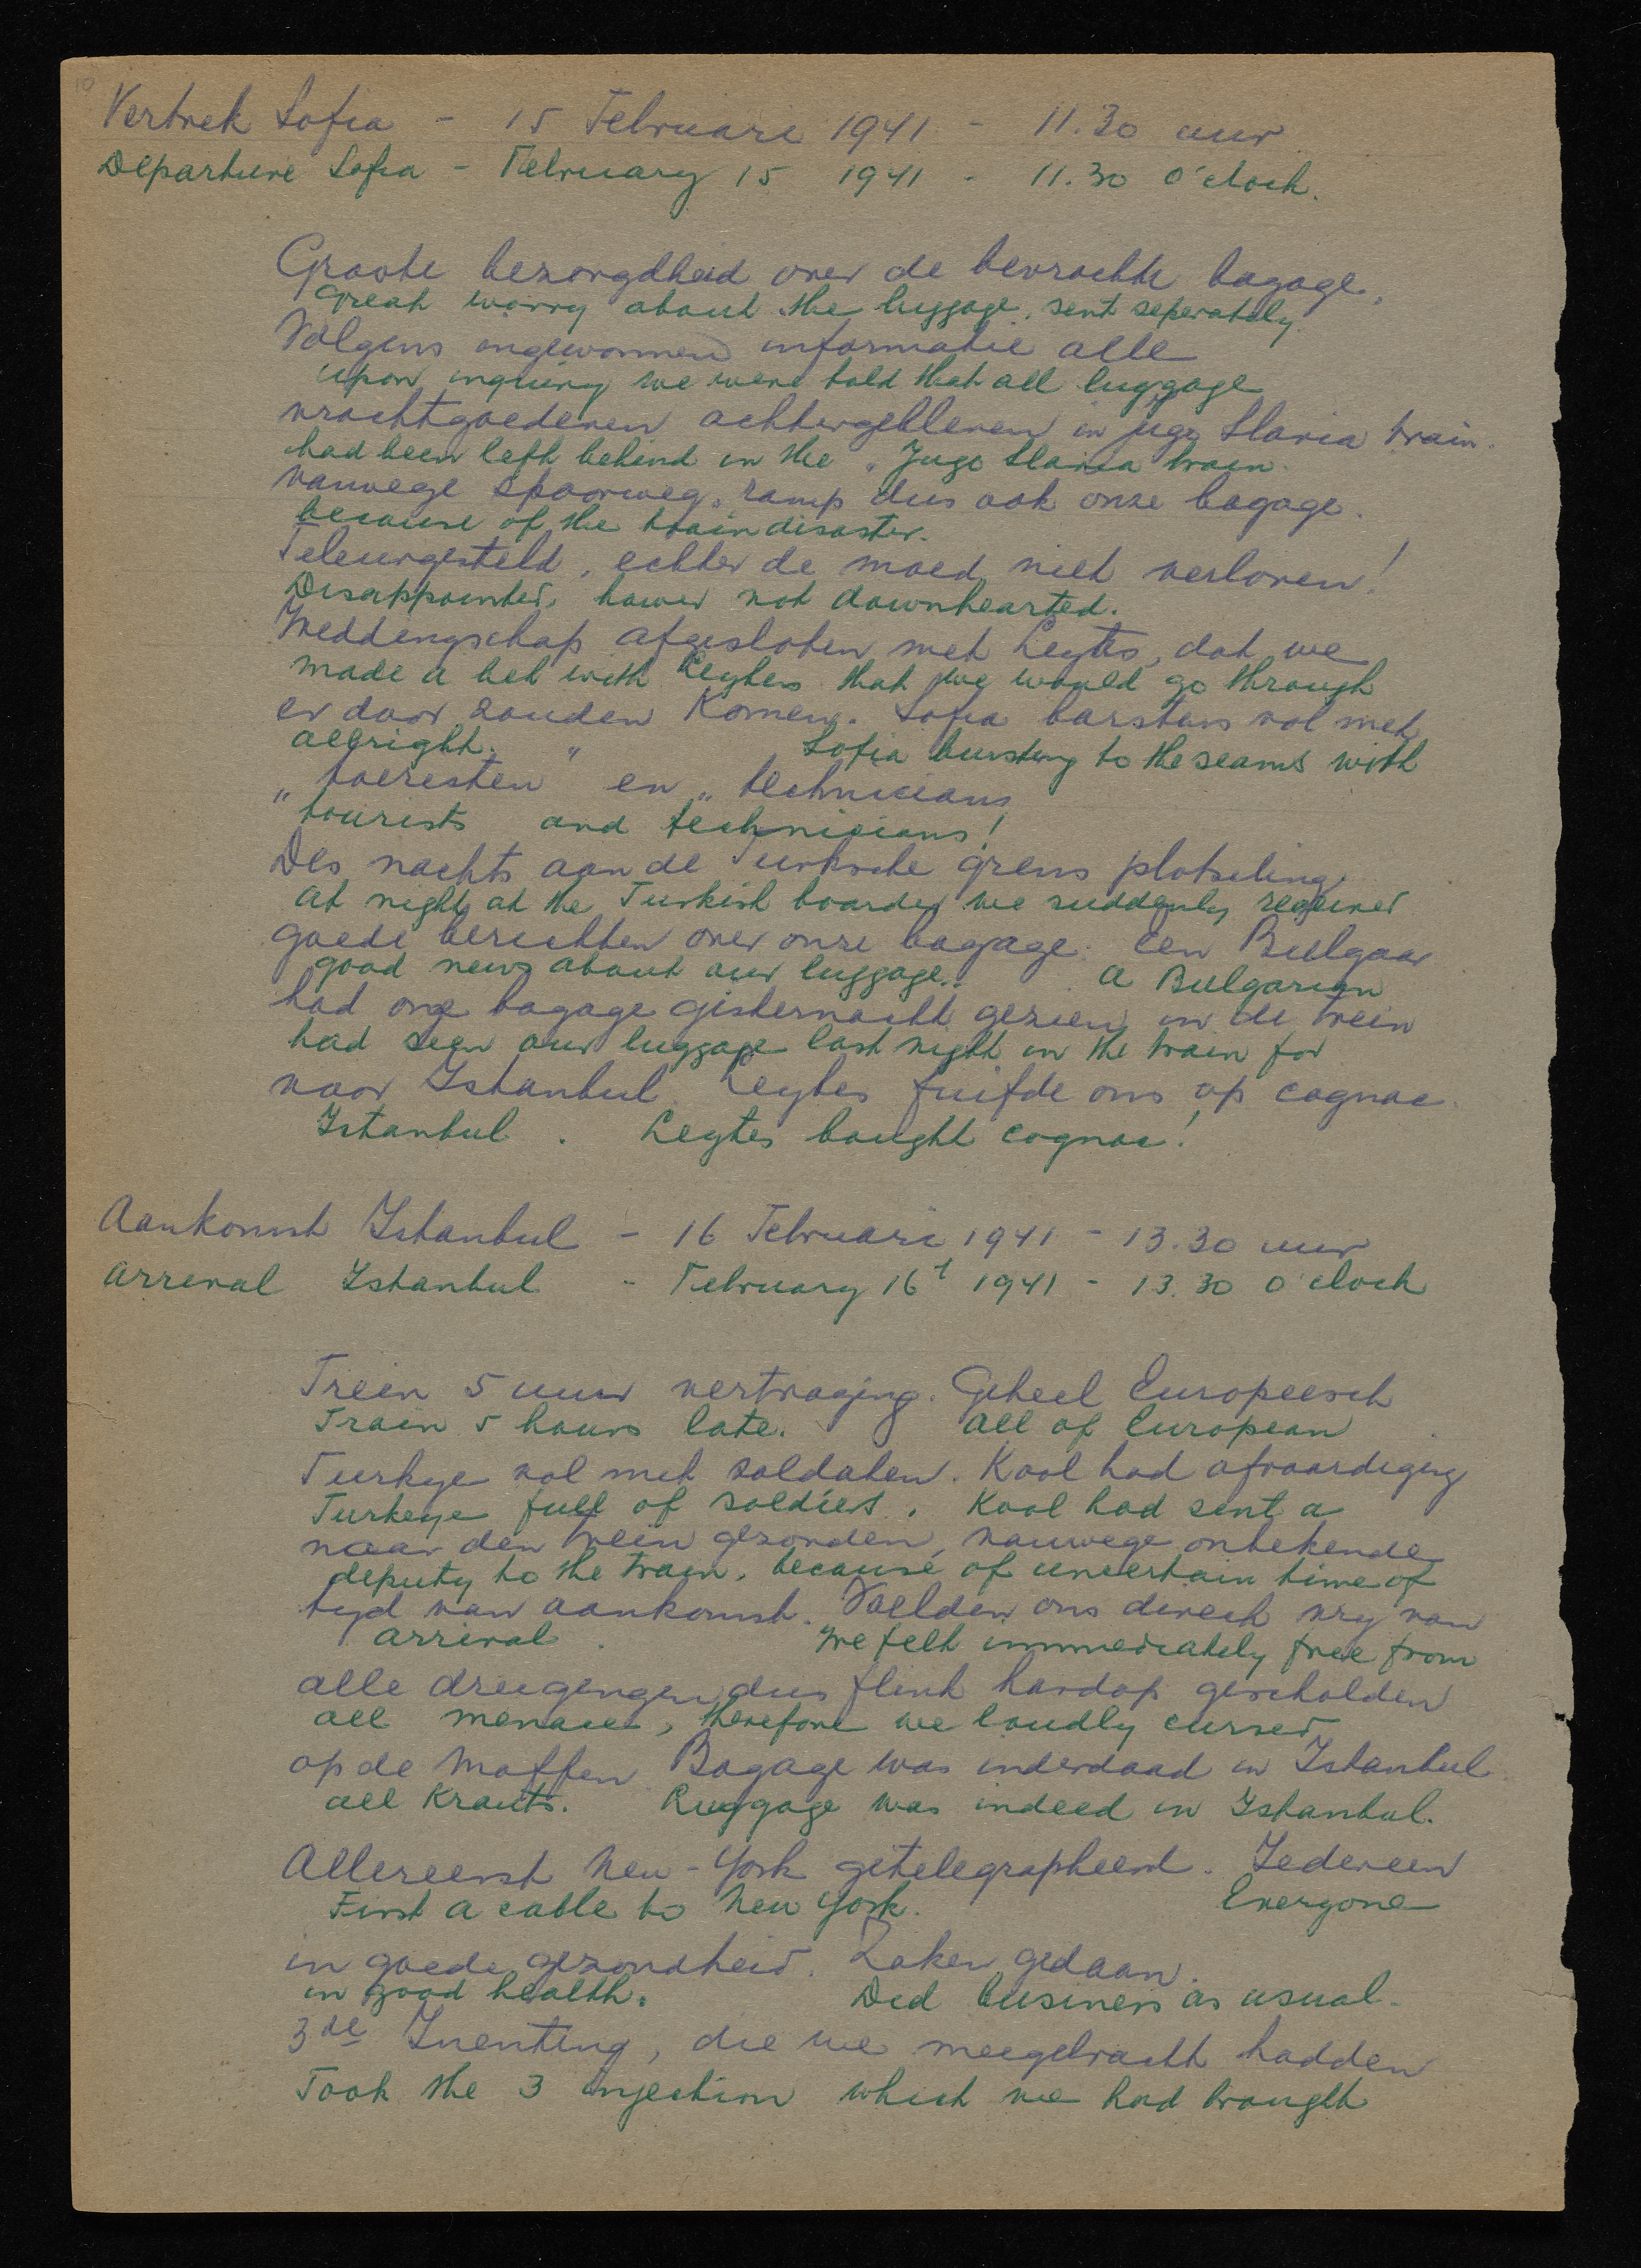 10
Vertrek Sofia - 15 Februari 1941 - 11.30 uur
Departure Sofia - February 15 1941 - 11.30 O'clock.
Groote bezorgdheid over de bevrachte bagage.
Great worry about the luggage, sent seperately.
Volgens ingewonnen informatie alle
upon inquiry we were told that all luggage
vrachtgoederen achtergebleven in Jugo Slavia train.
had been left behind in the Jugo Slavia train.
vanwege spoorweg ramp dus ook onze bagage.
because of the train disaster.
Teleurgesteld, echter de moed niet verloren!
Disappointed, hower not downhearted.
Weddengschap afgesloten met Leytes, dat we
made a bet with Leytes that we would go through
er door zouden komen. Sofia barstens vol met
allright. Sofia bursting to the seams with
„toeristen" en „technicians
tourists and technicians!
Des nachts aan de Turksche grens plotseling
At night at the Turkish boarder we suddenly received
goede berichten over onze bagage. Een Bulgaar
good news about our luggage. A Bulgarian
had onze bagage gisternacht gezien in de trein
had seen our luggage last night in the train for
naar Istanbul. Leytes fuifde ons op cognac.
Istanbul. Leytes bought cognac!
Aankomst Istanbul - 16 Februari 1941 - 13.30 uur
Arrival Istanbul - February 16t 1941 - 13.30 O'clock
Trein 5 uur vertraging. Geheel Europeesch
Train 5 hours late. All of European
Turkye vol met soldaten. Kool had afvaardiging
Turkeye full of soldiers. Kool had sent a
naar den trein gezonden, vanwege onbekende
deputy to the train, because of uncertain time of
tyd van aankomst. Voelden ons direct vry van
arrival. We felt immediately free from
alle dreigingen dus flink hardop gescholden
all menace, therefore we loudly cursed
op de Moffen. Bagage was inderdaad in Istanbul
all Krauts. Luggage was indeed in Istanbul.
Allereerst New-York getelegrapheerd. Iedereen
First a cable to New York. Everyone
in goede gezondheid. Zaken gedaan.
in good health. Did business as usual.
3de Inenting, die we meegebracht hadden
Took the 3 injection which we had brought